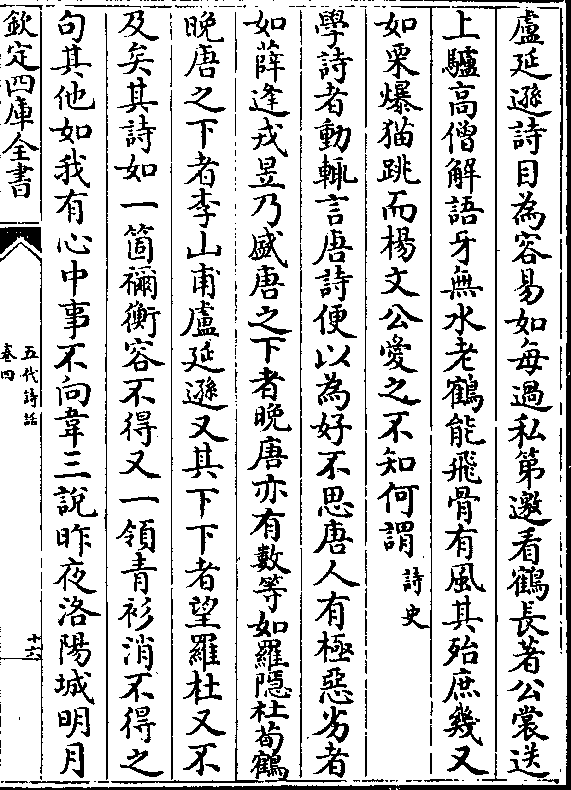 盧延遜詩目為容易如每過私第邀看鶴長著公裳送
上驢高僧解語牙無水老鶴能飛骨有風其殆庶幾又
如栗爆猫跳而楊文公愛之不知何謂 詩史
學詩者動輒言唐詩便以為好不思唐人有極惡劣者
如薛逢戎昱乃盛唐之下者晚唐亦有數等如羅隱杜荀鶴
晚唐之下者李山甫盧延遜又其下下者望羅杜又不
及矣其詩如一箇禰衡容不得又一領青衫消不得之
句其他如我有心中事不向韋三說昨夜洛陽城明月
欽定四庫全書
五代詩話
卷四
十六